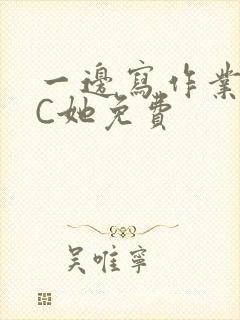 一邊寫作業
C她免費
吳唯寧